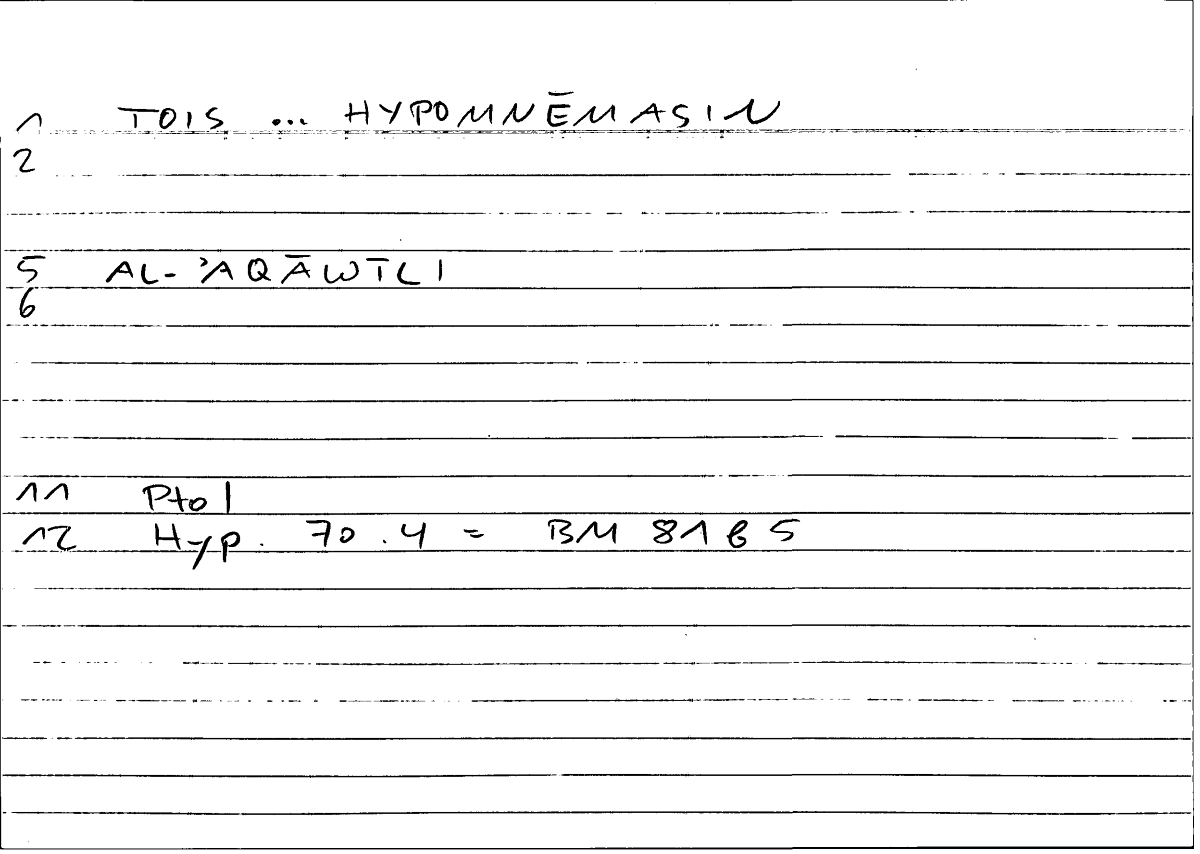 1 TOIS ... HYPOMNĒMASIN
2
5 AL-ʾAQĀWĪLI
6
11 Ptol
12 Hyp. 70.4 = BM 81b5